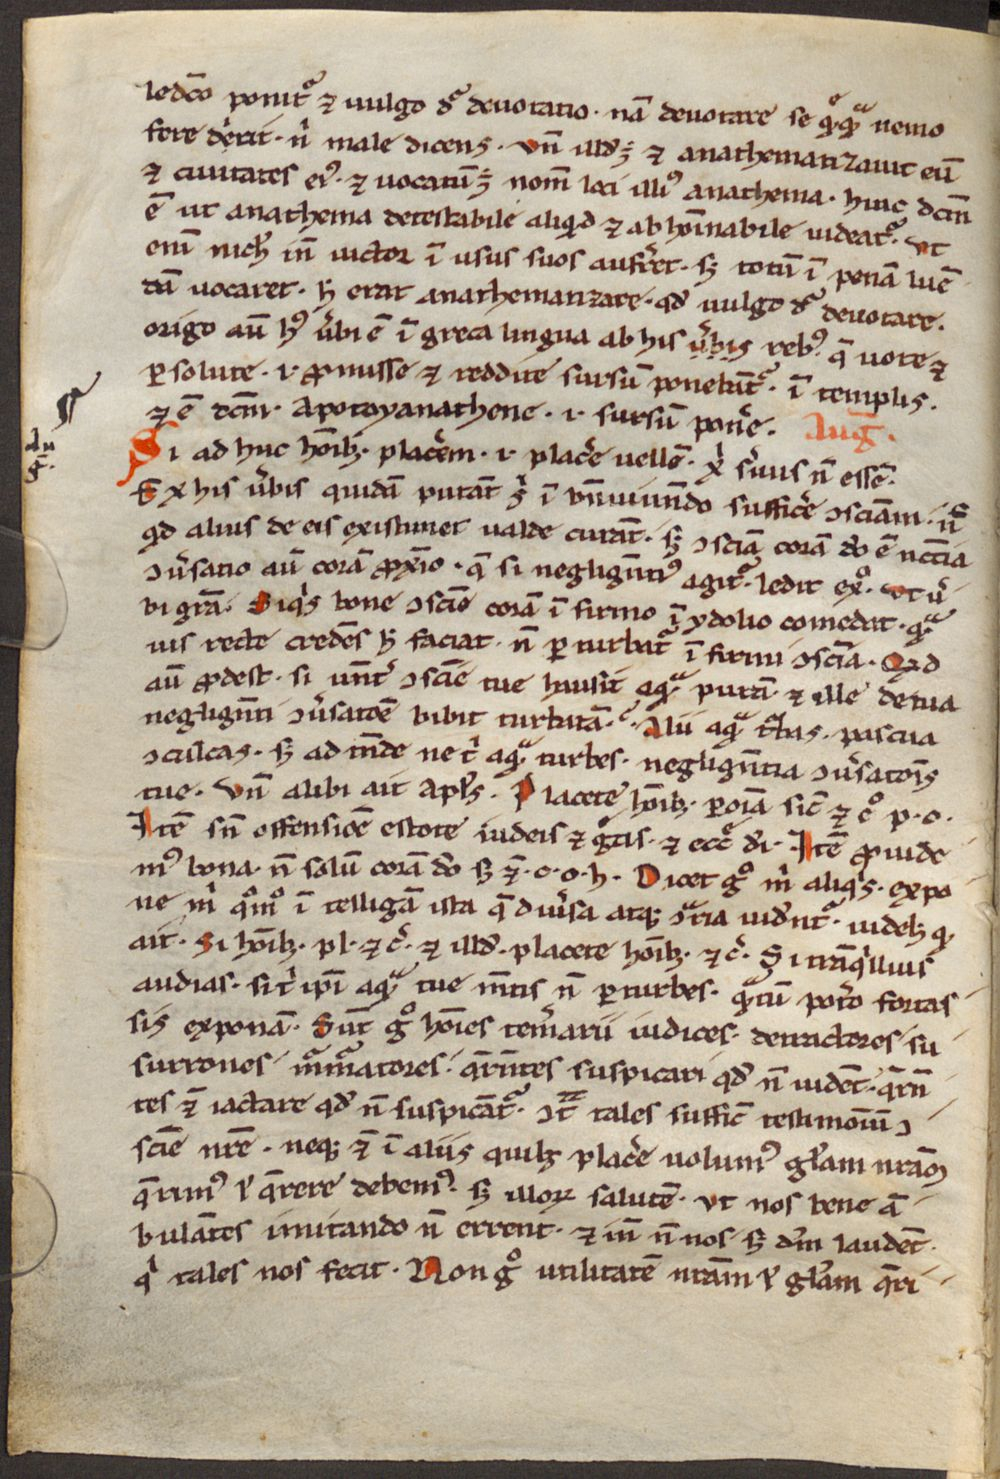 ledc̄o ponit᷑ ⁊ uulgo d᷑ deuotatio. nā deuotare se q̊qᷓ nemo
fere dix̉it. n̉ male dicens. Vn̄ illd̓ ⁊ anathematizauit eū
⁊ ciuitates eiꝰ. ⁊ uocatū ē nom̄ loci illiꝰ anathema. hinc dc̄m
ē ut anathema detestabile aliqͥd ⁊ abhoīnabile uideat᷑. Vt
eni nichˡ in̄ uictor ī usus suos auferret. sꝫ totū ī penā luē
dā uocaret. h̄ erat anathematizare. qd̓ uulgo d᷑ deuotare.
origo aū hꝰ ūbi ē ī greca lingua ab his ūbis rebꝰ. q̄ uote ⁊
ꝑsolute. i. ꝓmisse ⁊ reddite sursū ponebant᷑. ī templis.
⁊ ē dc̄m. Apotoyanathene. i. sursū pon̄e. Auḡ.
Si ad huc hoīb; plac̄em. i. plac̄e uellē. xp̄i s̄uus n̄ essē.
Ex his ūbis quidā putāt ī bn̄ uiuēdo suffic̄e ↄsciam. n̄
qd̓ alius de eis existimet ualde curāt. sꝫ ↄscīa corā do ē nccīa
ↄūsatio aū corā ꝓxīo. q̄ si neglign̄tiꝰ agit᷑. ledit
bi grā. Siqͥs bone ↄsciē corā ī firmo ī ydolio comedat. qᷓ
uis recte credēs h̄ faciat. n̄ ꝑturbat᷑ ī firmi ↄscīa. Qͥd
aū ꝓdest. si ↄsciē tue hausit aqᷓ purā. ⁊ ille de tua
neglign̄ti ↄūsatōe bibit turbatā. Alii aqᷓ t̄bas. pascua
ↄculcas. sꝫ ad tende ne aqᷓ turbes. neglign̄tia ↄūsatōis
tue. Vn̄ alibi ait Apl̓s. Placete hoīb; ꝑ oīa sic̄ ⁊ . p. o.
Itē sn̄ offensiōe estote iudeis ⁊ gͤtis. ⁊ eccᷓ di. Itē ꝓuide
mꝰ bona. n̄ solū corā do sꝫ ⁊. c. o. h. Dicet gͦ m̄ aliqͥs. expo
ne m̄ qͦmͦ ī telligā ista q̄ diūsa atq; ↄᷓria uident᷑. uidelꝫ q
ait. Si hoīb; pl. ⁊c̄. ⁊ illd̓. placete hoīb; ⁊c̄. Si trāqͥllius
audias. si t̓ ipī aqᷓ tue mn̄tis n̄ ꝑturbes. qᷓtū poto fortas
sis exponā. Sūt gͦ hoīes tem̄arii iudices. detractores. su
surrones. mᷓmᷓatores. q̄rn̄tes suspicari qd̓ n̄ uidēt. q̄rn̄
tes ⁊ iactare qd̓ n̄ suspicāt᷑. ↄt̄ tales suffic̄ testimoniū ↄ
sciē nr̄e. neq; ⁊ ī aliis quibꝫ plac̄e uolumꝰ gl̓am nr̄am
q̄rimꝰ ł q̄rere debemꝰ. sꝫ illoꝝ salutē. Vt nos bene ā
bulātes imitando n̄ errent. ⁊ in̄ n̄ nos sꝫ dm̄ laudēt.
qͥ tales nos fecit. Non gͦ utilitatē nr̄am ł gl̓am q̄ri
Au
g̅.